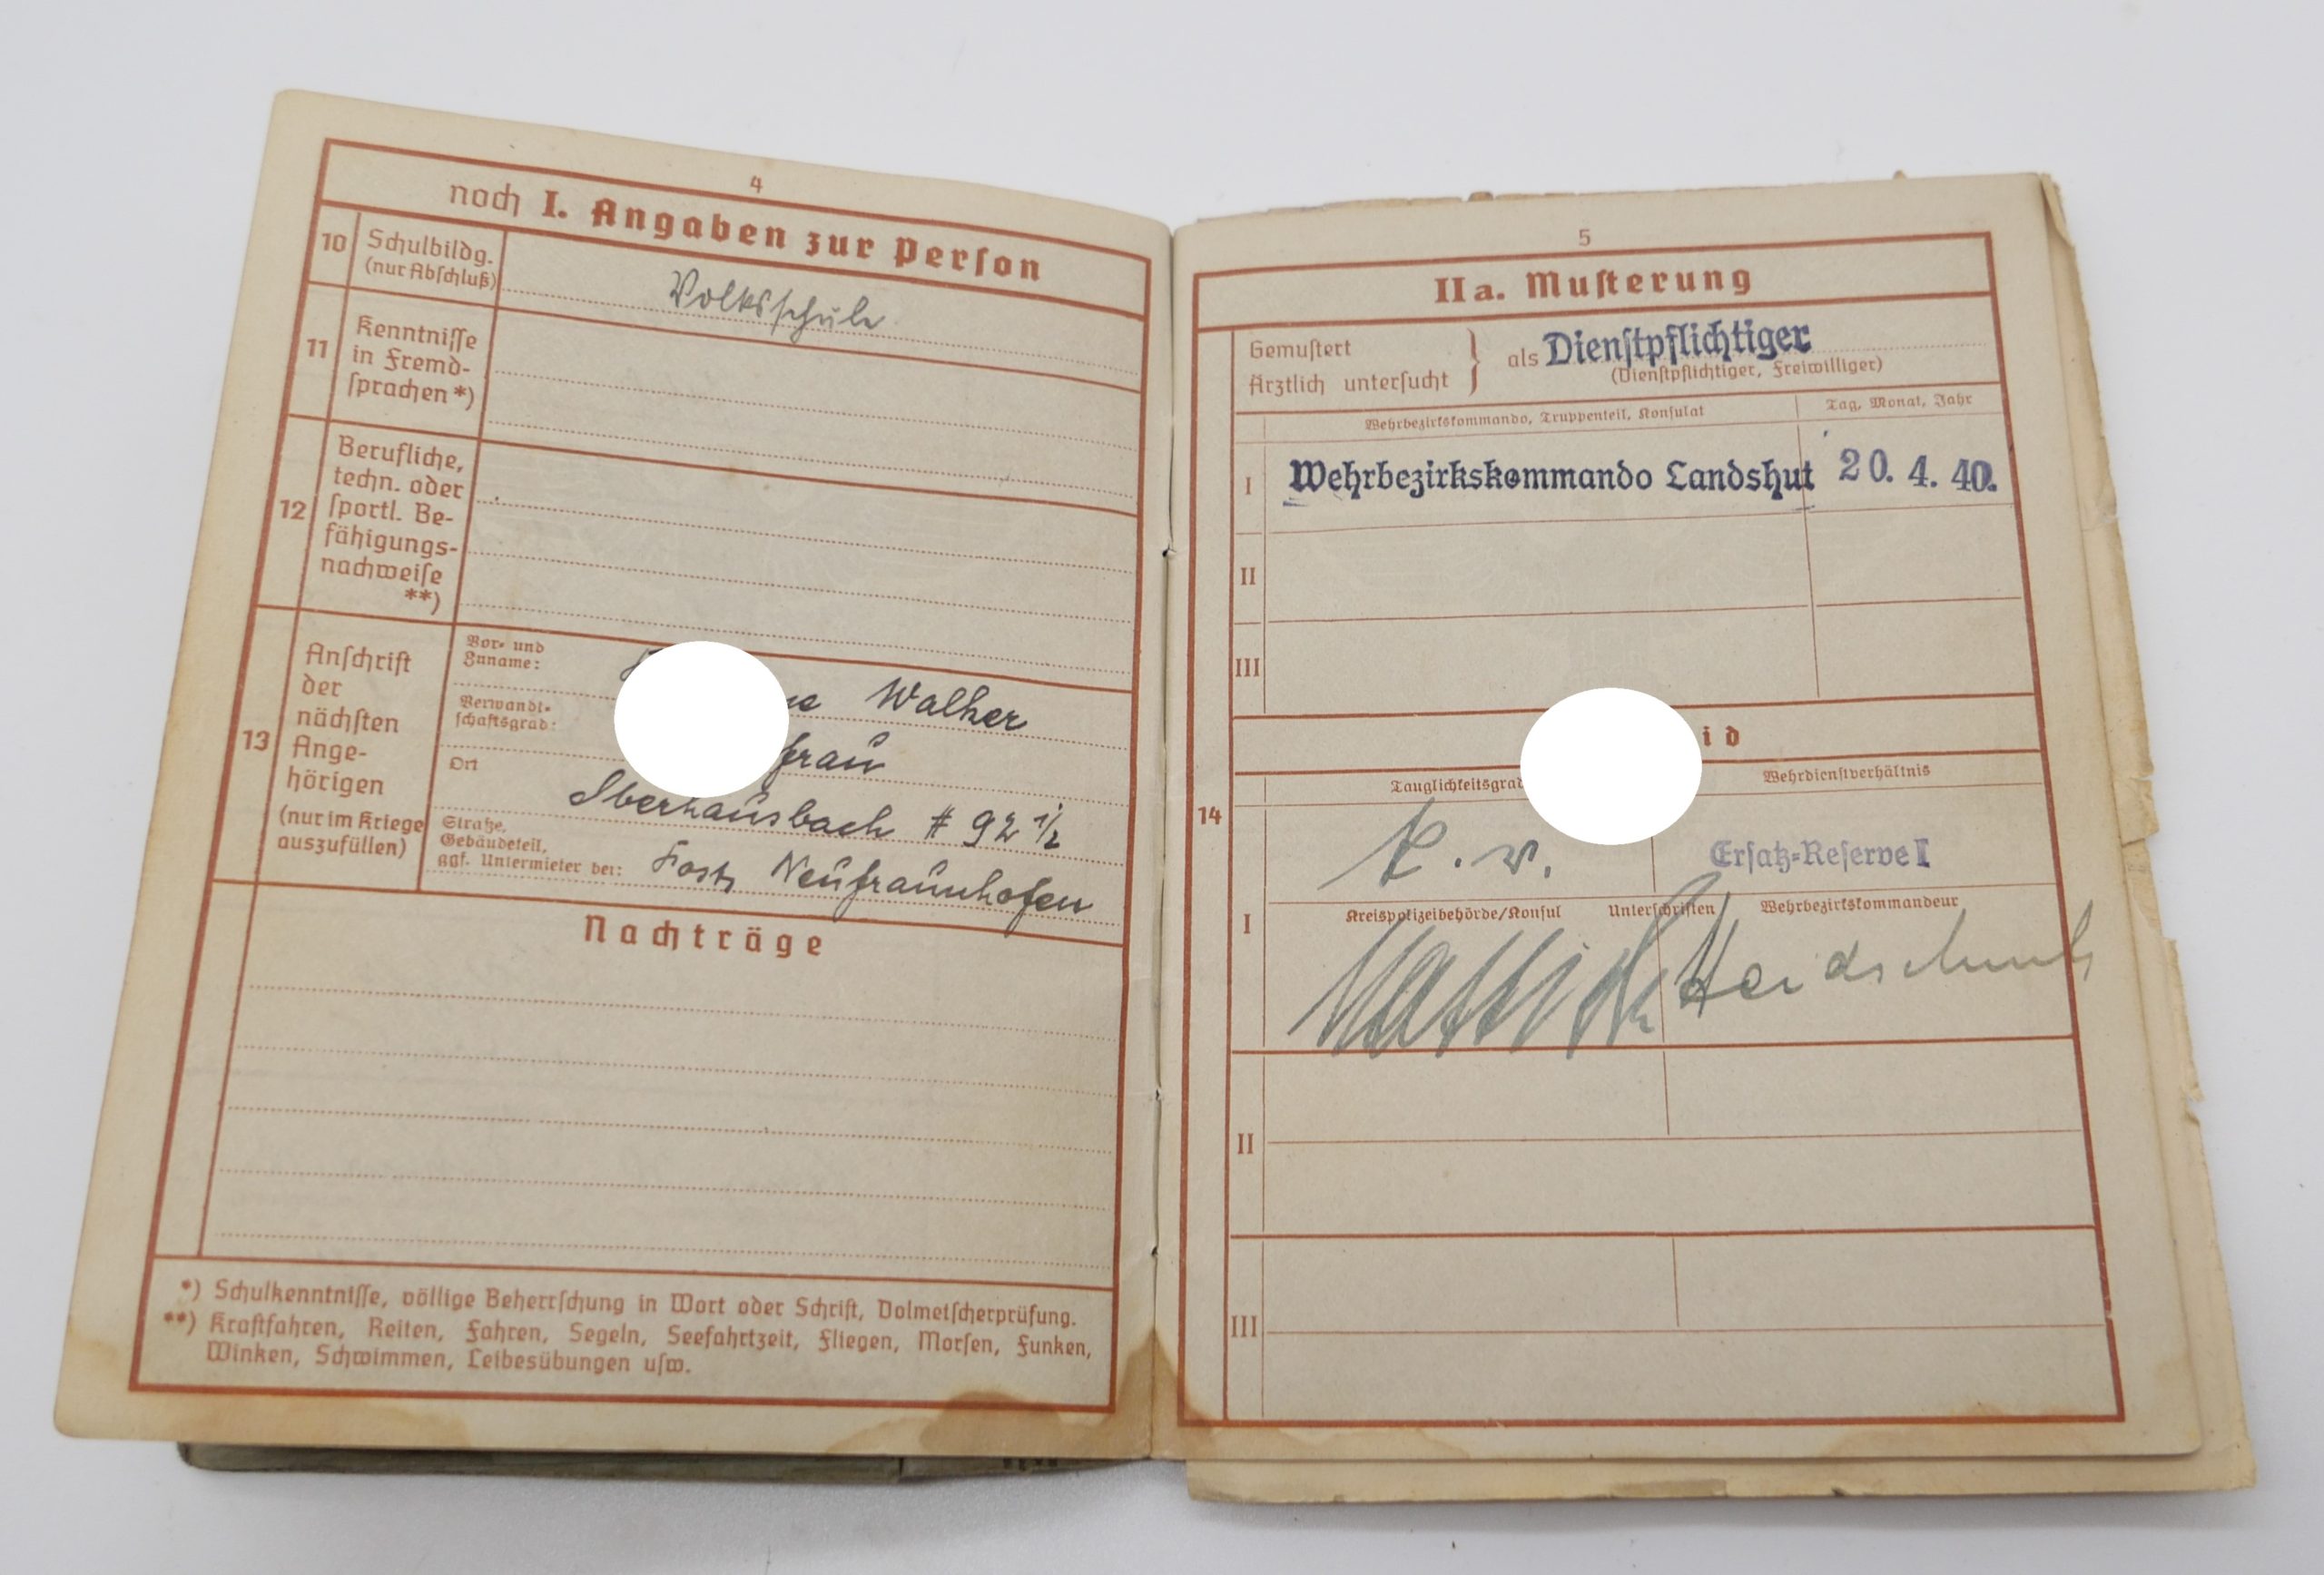 4
noch I. Angaben zur Person
10 Schulbildg.
(nur Abschluß)
Volksschule
11 Kenntnisse
in Fremd-
sprachen *)
12 Berufliche,
techn. oder
sportl. Be-
fähigungs-
nachweise
**)
13 Anschrift
der
nächsten
Ange-
hörigen
(nur im Kriege
auszufüllen)
Vor- und
Zuname:
Walher
Verwandt-
schaftsgrad:
frau
Ort
# 92 1/2
Straße,
Gebäudeteil,
ggf. Untermieter bei:
Post Neufraunhofen
Nachträge
*) Schulkenntnisse, völlige Beherrschung in Wort oder Schrift, Dolmetscherprüfung.
**) Kraftfahren, Reiten, Fahren, Segeln, Seefahrtzeit, Fliegen, Morsen, Funken,
Winken, Schwimmen, Leibesübungen usw.
5
IIa. Musterung
Gemustert
Ärztlich untersucht
} als Dienstpflichtiger
(Dienstpflichtiger, Freiwilliger)
Wehrbezirkskommando, Truppenteil, Konsulat
Tag, Monat, Jahr
I Wehrbezirkskommando Landshut 20. 4. 40.
II
III
id
14
Tauglichkeitsgrad
Wehrdienstverhältnis
k. v.
Ersatz-Reserve I
I
Kreispolizeibehörde/Konsul Unterschriften Wehrbezirkskommandeur
II
III